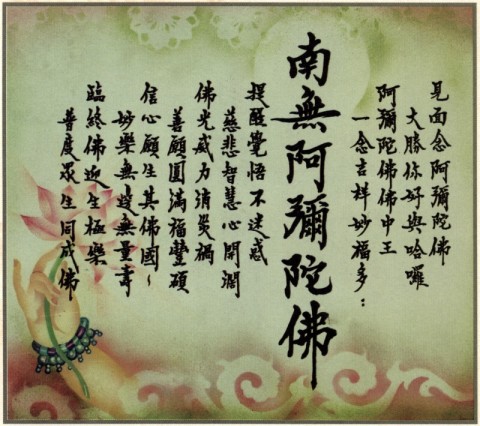 見面念阿彌陀佛
大勝你好與哈囉
阿彌陀佛佛中王
一念吉祥妙福多：
南無阿彌陀佛
提醒覺悟不迷惑
慈悲智慧心開濶
佛光威力消災禍
善願圓滿福豐碩
信心願生其佛國～
妙樂無邊無量壽
臨終佛迎生極樂
普度眾生同成佛